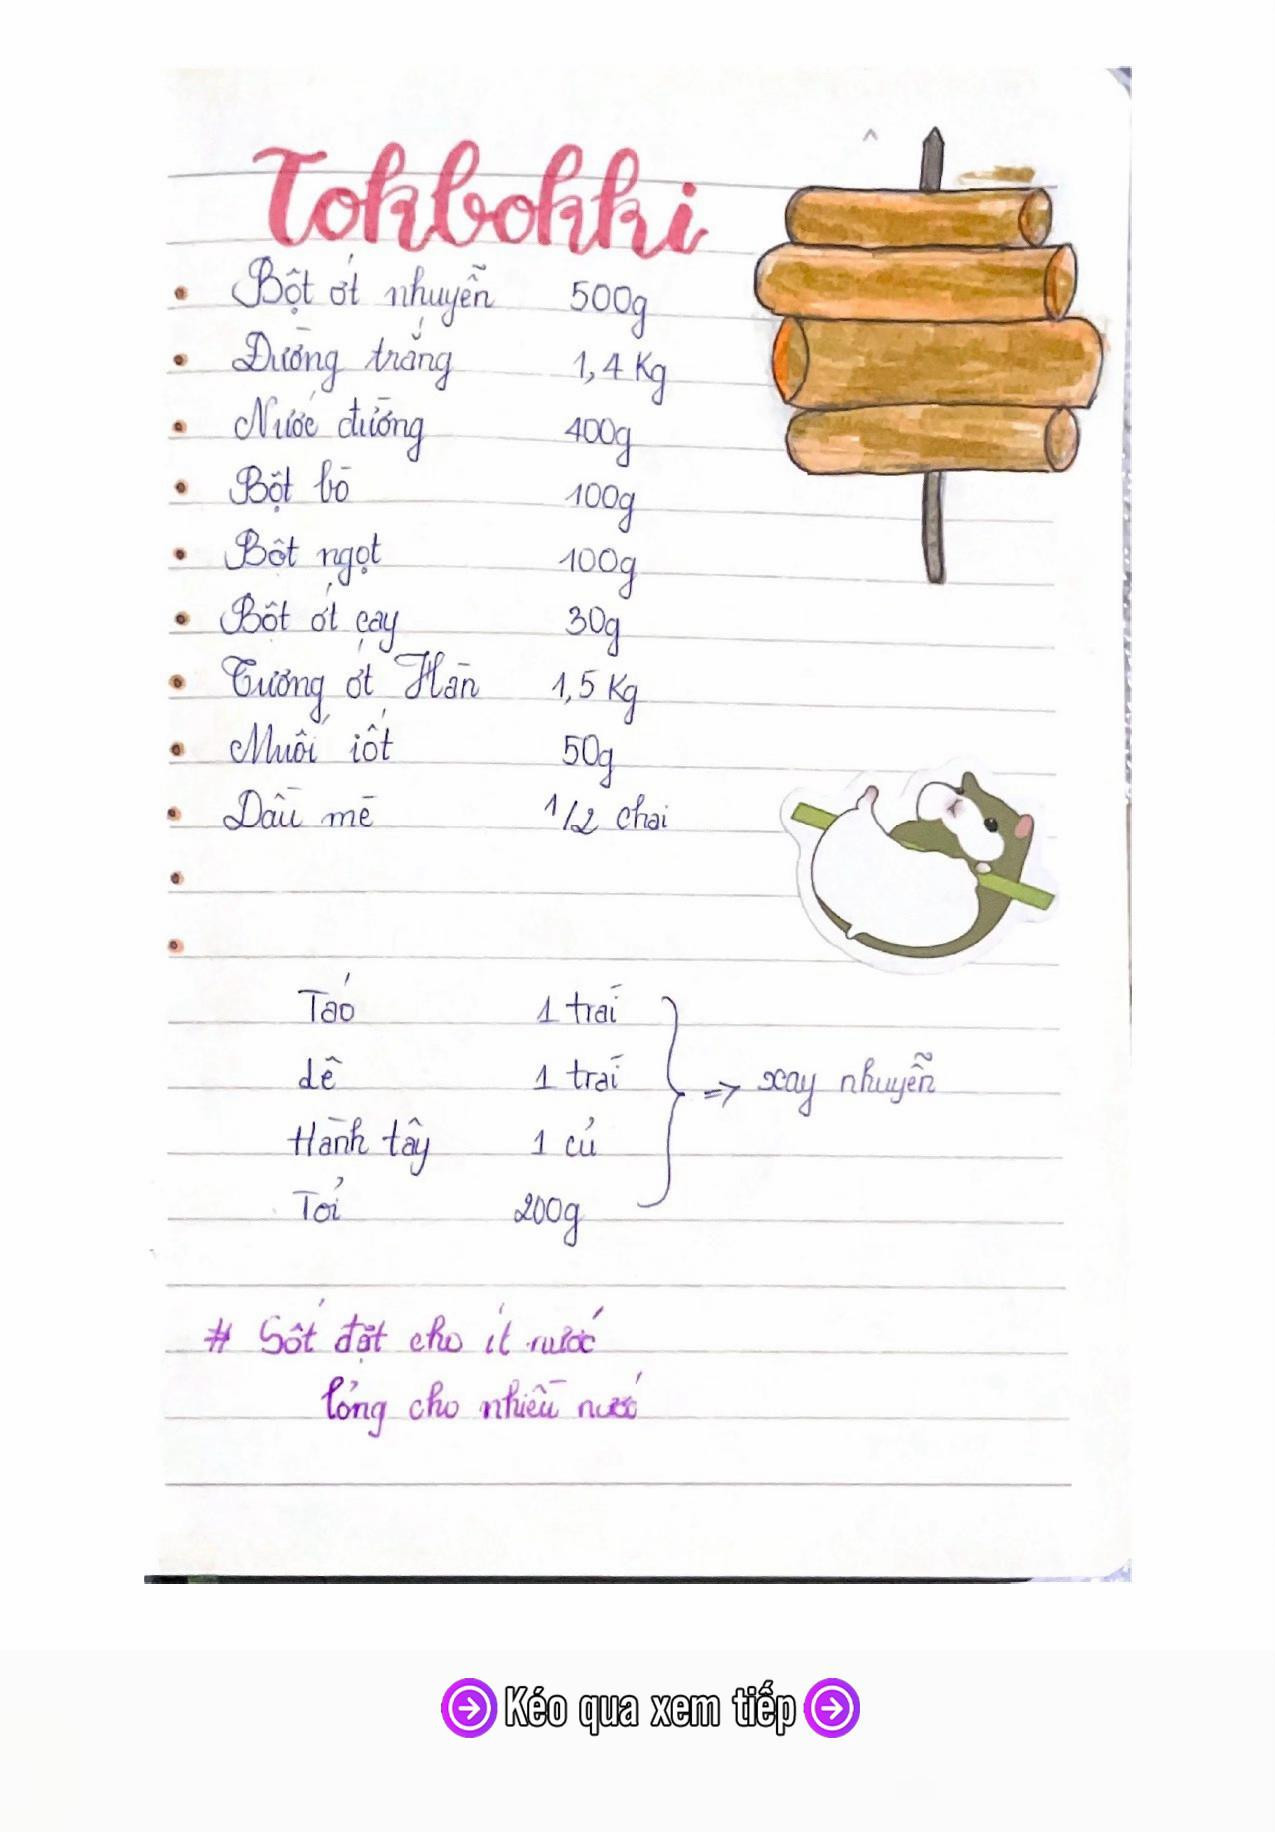 Tokbokki
Bột ớt nhuyễn 500g
Đường trắng 1,4 Kg
Nước đường 400g
Bột bò 100g
Bột ngọt 100g
Bột ớt cay 30g
Tương ớt Hàn 1,5 Kg
Muối iôt 50g
Dầu mè 1/2 chai
Táo 1 trái
Lê 1 trái
Hành tây 1 củ
Tỏi 200g
=> xay nhuyễn
# Sốt đặt cho ít nước
lỏng cho nhiều nước
Kéo qua xem tiếp